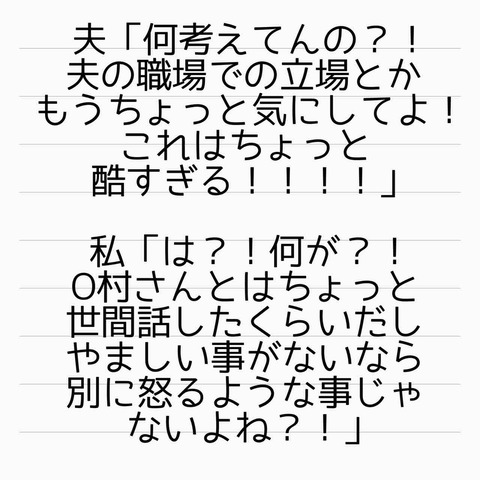 夫「何考えてんの？！
夫の職場での立場とか
もうちょっと気にしてよ！
これはちょっと
酷すぎる！！！！」
私「は？！何が？！
O村さんとはちょっと
世間話したくらいだし
やましい事がないなら
別に怒るような事じゃ
ないよね？！」